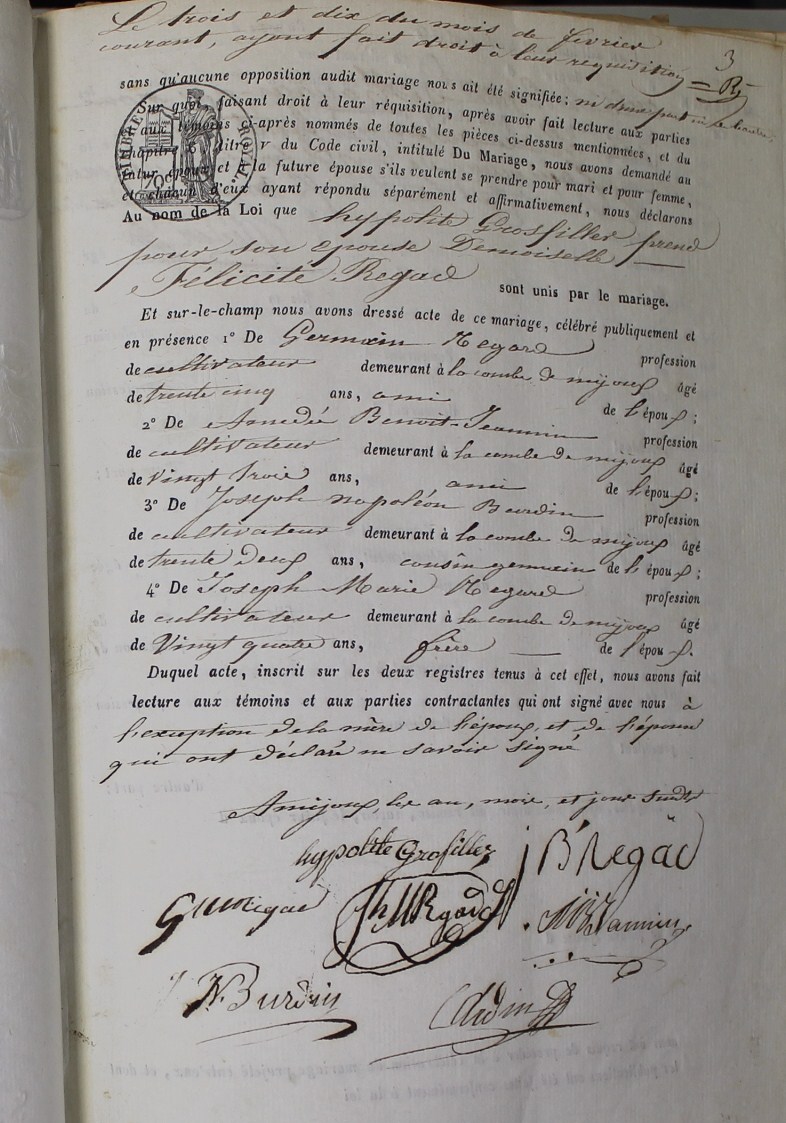 Le trois et dix du mois de février
courant, ayant fait droit à leur réquisition
3
sans qu'aucune opposition audit mariage nous ait été signifiée;
Sur quoi, faisant droit à leur réquisition, après avoir fait lecture aux parties
aux témoins ci-après nommés de toutes les pièces ci-dessus mentionnées, et du
chapitre 6 du titre v du Code civil, intitulé Du Mariage, nous avons demandé au
futur époux et à la future épouse s'ils veulent se prendre pour mari et pour femme,
et chacun d'eux ayant répondu séparément et affirmativement, nous déclarons
TIMBRE ROYAL
Au nom de la Loi que hypolite Grosfiller prend
pour son épouse Demoiselle
Félicité Regad sont unis par le mariage.
Et sur-le-champ nous avons dressé acte de ce mariage, célébré publiquement et
en présence 1° De Germain Regard profession
de cultivateur demeurant à la combe de mijoux âgé
de trente cinq ans, ami de l'époux;
2° De Amédée Benoit-Jeannin profession
de cultivateur demeurant à la combe de mijoux âgé
de vingt trois ans, ami de l'époux;
3° De Joseph napoléon Burdin profession
de cultivateur demeurant à la combe de mijoux âgé
de trente deux ans, cousin germain de l'époux;
4° De Joseph Marie Regard profession
de cultivateur demeurant à la combe de mijoux âgé
de Vingt quatre ans, frère de l'épou
Duquel acte, inscrit sur les deux registres tenus à cet effet, nous avons fait
lecture aux témoins et aux parties contractantes qui ont signé avec nous à
l'exception de la mère de l'époux et de l'épouse
qui ont déclaré ne savoir signé
A mijoux les an, mois, et jour susdits
hypolite Grosfillez
j B Regad
G Regad
Jh M Regad
Jannin
N. Burdin